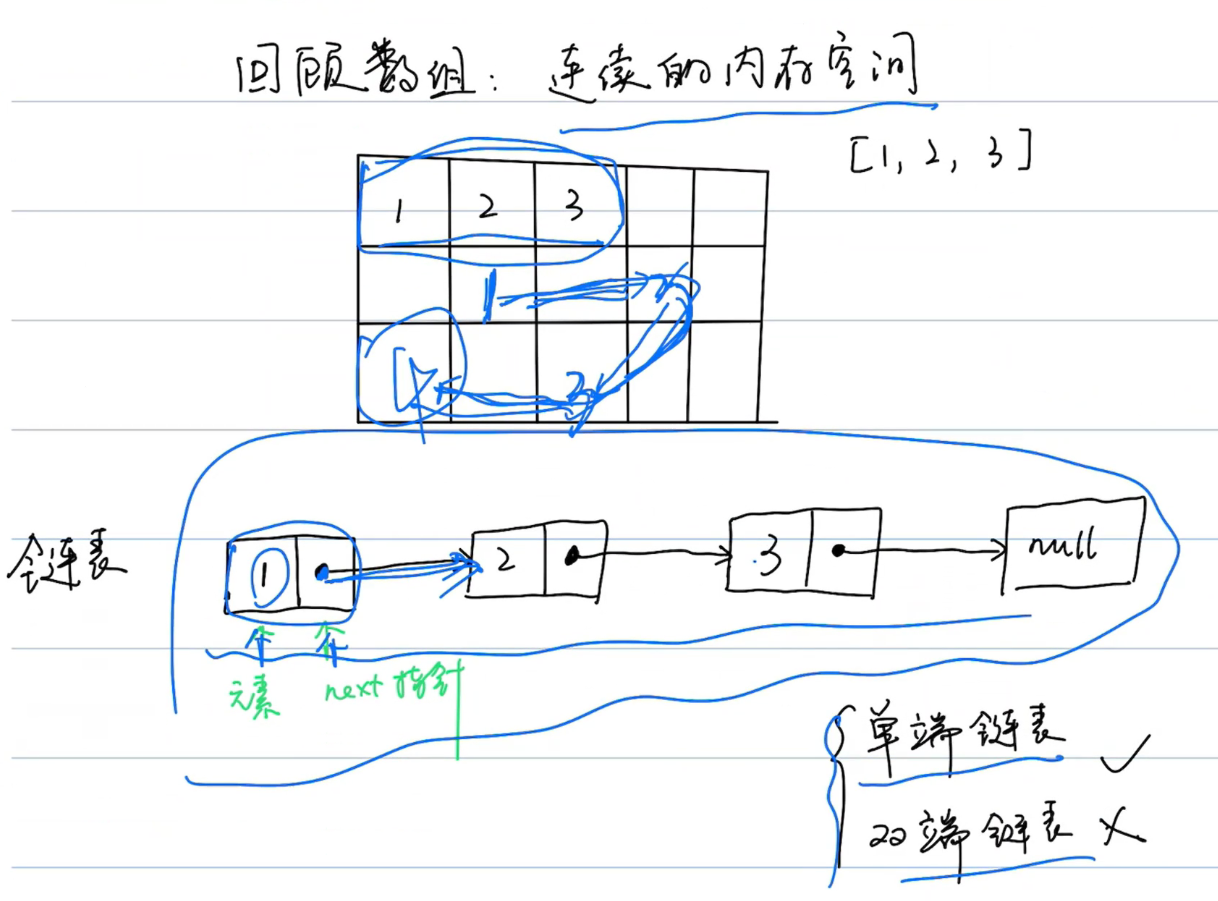 回顾数组：连续的内存空间
[1, 2, 3]
1 2 3
1 2
4 3
链表
1 2 3 null
元素 next 指针
单端链表 ✓
双端链表 ×